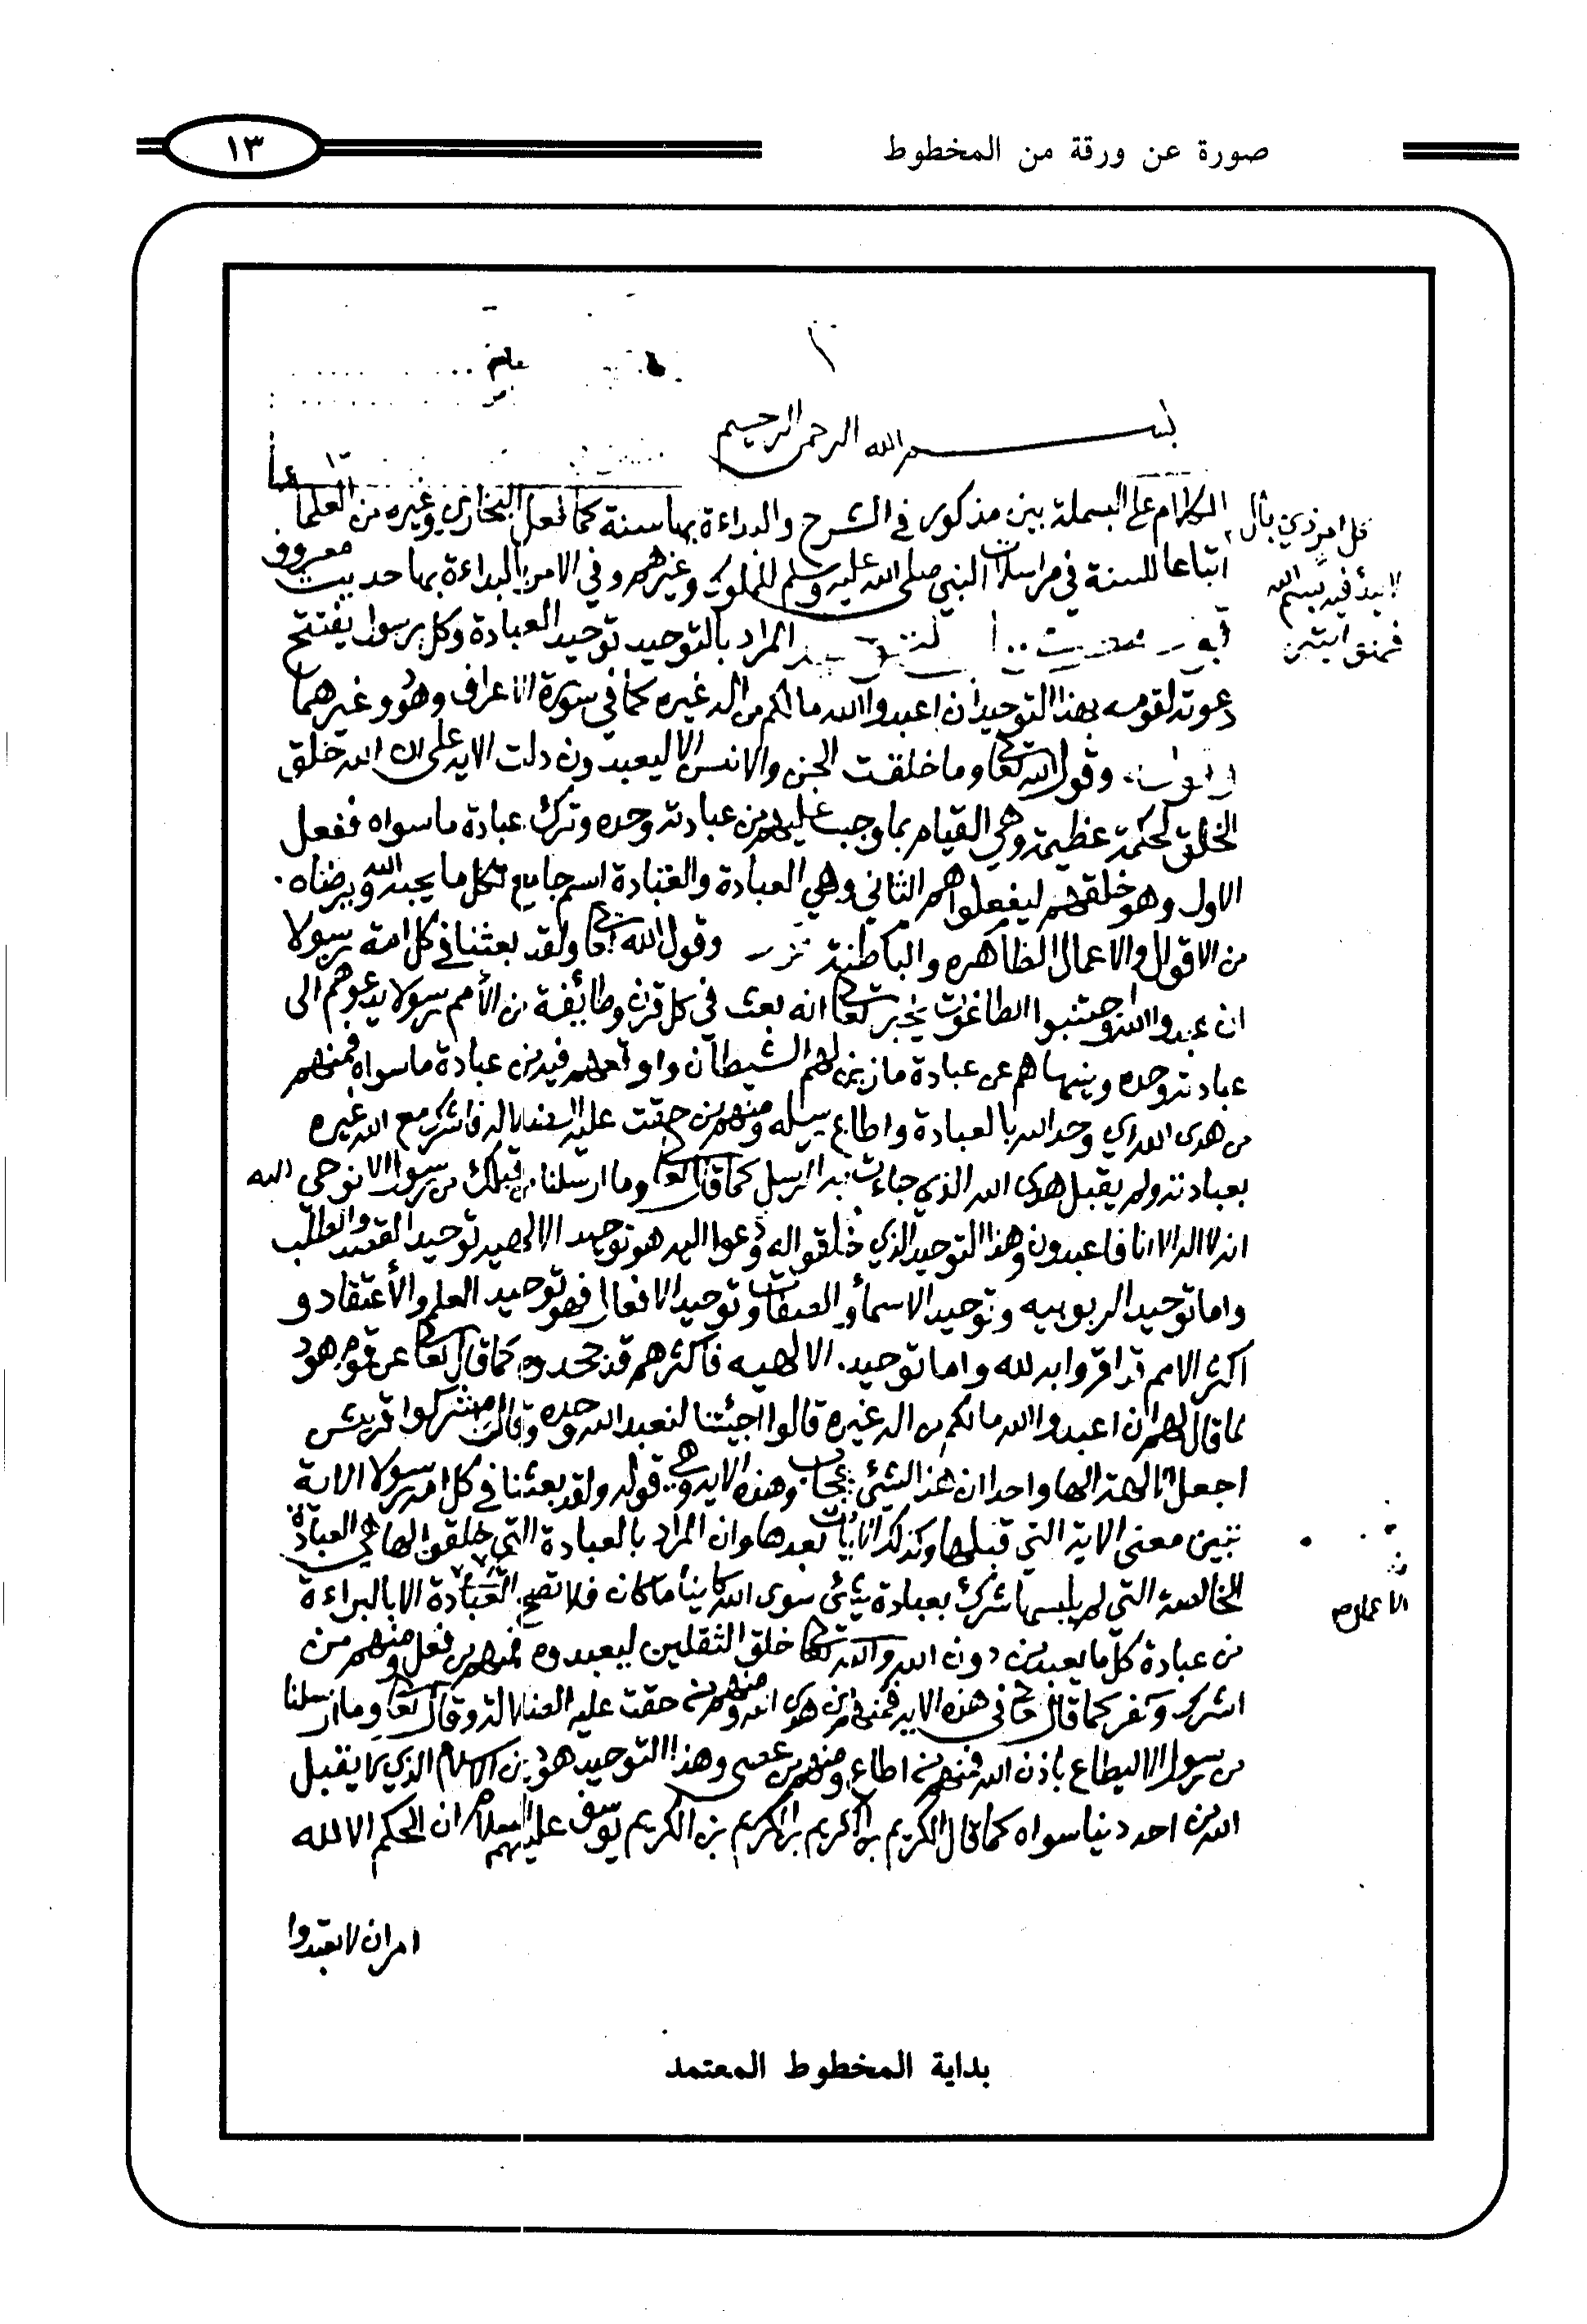 صورة عن ورقة من المخطوط
١٣
بسم الله الرحمن الرحيم
الكلام على البسملة بين مذكور في الشرح والبداءة بها سنة كما فعل البخاري وغيره من العلما
اتباعا للسنة في مراسلات النبي صلى الله عليه وسلم للملوك وغيرهم وفي الامر بالبداءة بها حديث معروف
المراد بالتوحيد توحيد العبادة وكل رسول يفتتح
دعوته لقومه بهذا التوحيد ان اعبدوا الله ما لكم من اله غيره كما في سورة الاعراف وهود وغيرهما
وقول الله تعا وما خلقت الجن والانس الا ليعبدون دلت الايه على ان الله خلق
الخلق لحكمة عظيمة وهي القيام بما وجب عليهم من عبادته وحده وترك عبادة ما سواه ففعل
الاول وهو خلقهم ليفعلوا هم الثاني وهي العبادة والعبادة اسم جامع لكل ما يحبه الله ويرضاه
من الاقوال والاعمال الظاهره والباطنة وقول الله تعا ولقد بعثنا في كل امة رسولا
ان عبدوا الله واجتنبوا الطاغوت يخبر تعا انه بعث في كل قرن وطائفة من الأمم رسولا يدعوهم الى
عبادته وحده وينهاهم عن عبادة ما زين لهم الشيطان واوقعهم فيه من عبادة ما سواه فمنهم
من هدى الله اي وحد الله بالعبادة واطاع رسله ومنهم من حقت عليه الضلالة فاشرك مع الله غيره
بعبادته ولم يقبل هدى الله الذي جاءت به الرسل كما قال تعا وما ارسلنا من قبلك من رسول الا نوحي اليه
انه لا اله الا انا فاعبدون وهذا التوحيد الذي خلقوا له ودعوا اليه هو توحيد الالهيه توحيد القصد والطلب
واما توحيد الربوبيه وتوحيد الاسمأ والصفات وتوحيد الافعال فهو توحيد العلم والأعتقاد و
اكثر الامم قد اقروا به لله واما توحيد الالهيه فاكثرهم قد جحدوه كما قال تعا عن قوم هود
لما قال لهم ان اعبدوا الله ما لكم من اله غيره قالوا اجيئتنا لنعبد الله وحده وقالت مشركوا قريش
اجعل الالهة الها واحدا ان هذا لشيئ عجاب وهذه الايه وهي قوله ولقد بعثنا في كل امه رسولا الاية
تبين معنى الاية التي قبلها وكذلك الايات بعدها وان المراد بالعبادة التي خلقوا لها هي العبادة
الخالصة التي لم يلبسها شرك بعبادة شيئ سوى الله كاينا ما كان فلا تصح العبادة الا بالبراءة
من عبادة كل ما يعبد من دون الله والله تعا خلق الثقلين ليعبدوه فمنهم من فعل ومنهم من
اشرك وكفر كما قال تعا في هذه الايه فمنهم من هدى الله ومنهم من حقت عليه الضلالة وقال تعا وما ارسلنا
من رسول الا ليطاع باذن الله فمنهم من اطاع ومنهم من عصى وهذا التوحيد هو دين الاسلام الذي لا يقبل
الله من احد دينا سواه كما قال الكريم بن الكريم بن الكريم بن الكريم يوسف عليهم السلام ان الحكم الا لله
امر ان لا تعبدوا
كل امر ذي بال
لا يبدأ فيه ببسم الله
فهو ابتر
الاعمال
بداية المخطوط المعتمد